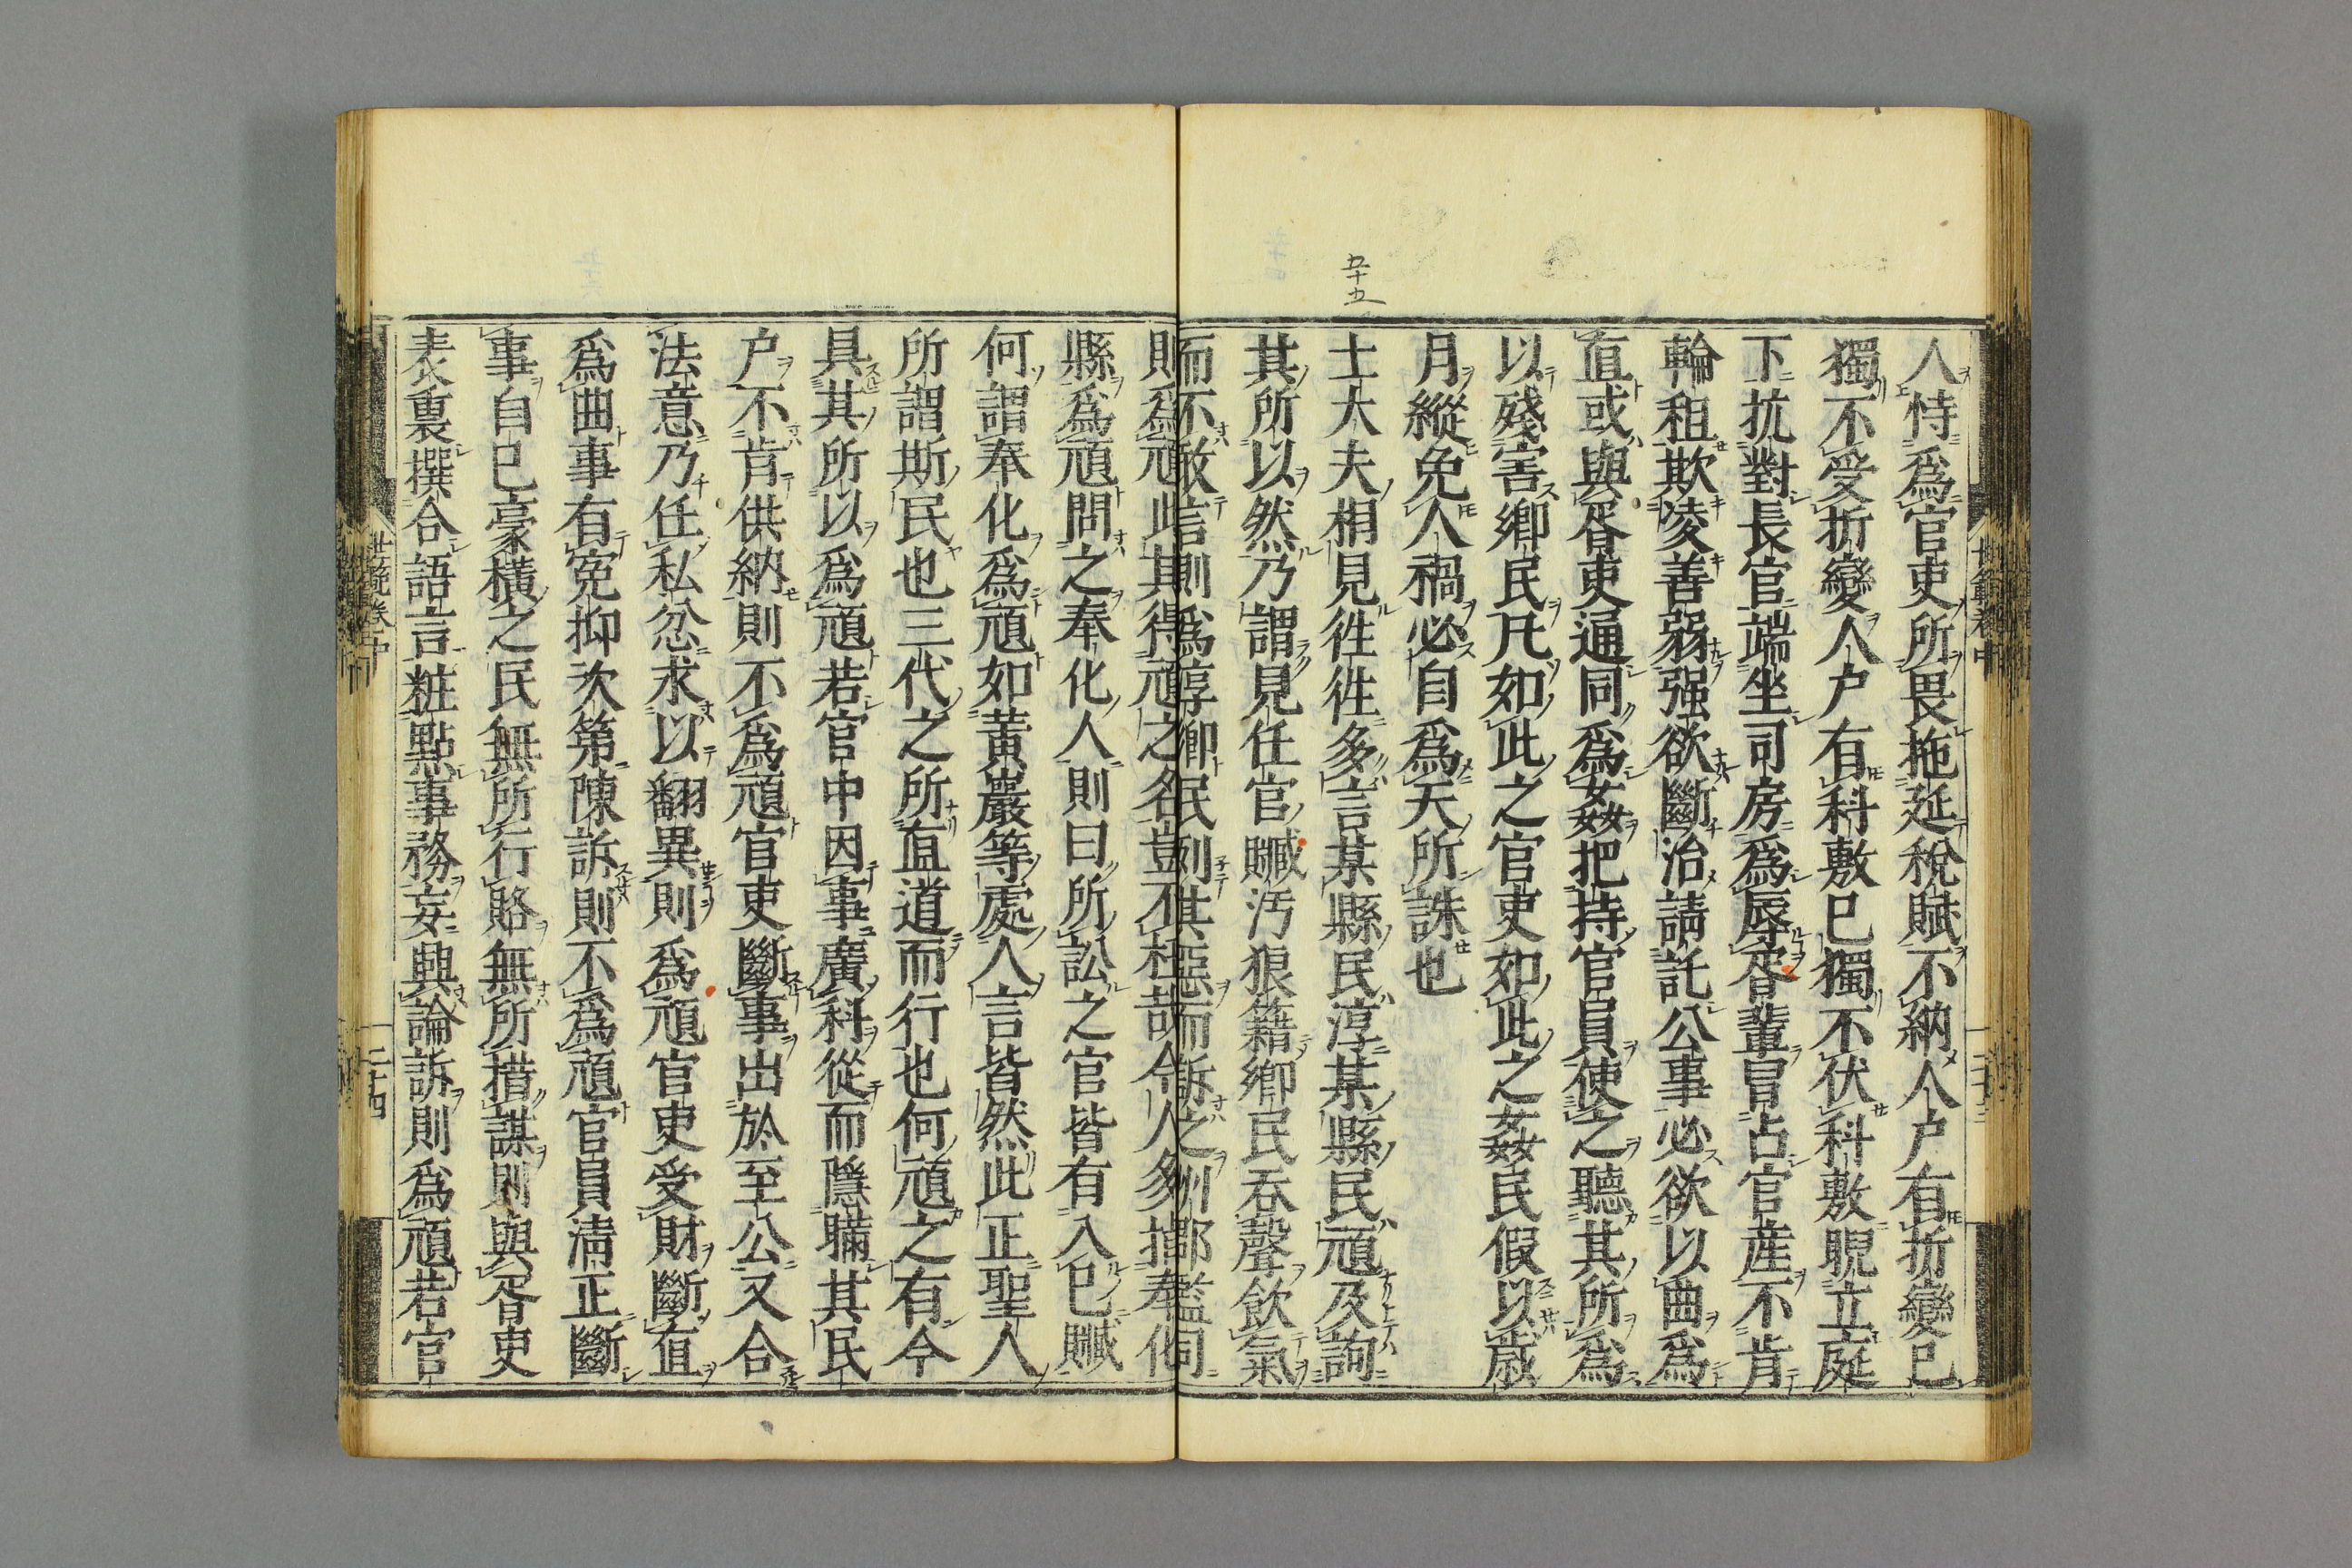 世範卷中
人恃爲官吏所畏拖延税賦不納人户有折變已
獨不受折變人户有科敷已獨不伏科敷睨立庭
下抗對長官端坐司房爲辱胥輩冒占官産不肯
輪租欺凌善弱强欲斷治請託公事必欲以曲爲
直或與胥吏通同爲姦把持官員使之聽其所爲
以殘害郷民凡如此之官吏如此之姦民假以歳
月縱免人禍必自爲天所誅也
五十五
士大夫相見徃徃多言某縣民淳某縣民頑及詢
其所以然乃謂見任官贓汚狼籍郷民吞聲飲氣
而不敢言則爲淳郷民列其惡而訴之州郡監司
則爲頑此其得頑之名豈不枉哉今人多指奉化
縣爲頑問之奉化人則曰所訟之官皆有入已贓
何謂奉化爲頑如黄巖等處人言皆然此正聖人
所謂斯民也三代之所直道而行也何頑之有今
具其所以爲頑若官中因事廣科從而隱瞞其民
户不肯供納則不爲頑官吏斷事出於至公又合
法意乃任私忿求以翻異則爲頑官吏受財斷直
爲曲事有冤抑次第陳訴則不爲頑官員淸正斷
事自已豪横之民無所行賂無所措謀則與胥吏
表裏撰合語言粧點事務妄興論訴則爲頑若官
世範卷中
二十四